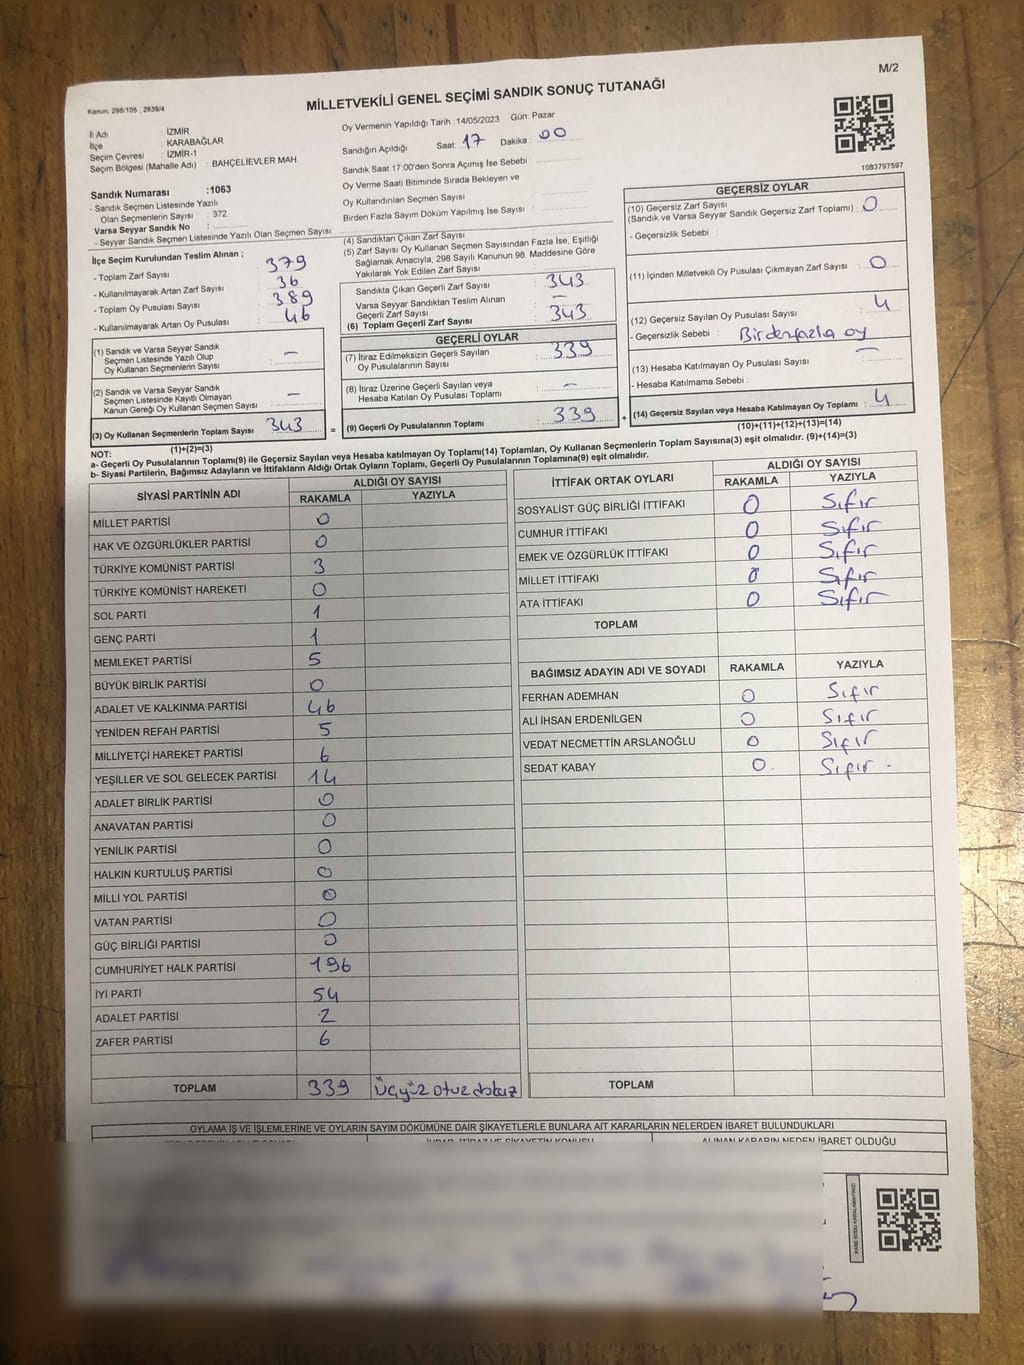 M/2
Kanun: 298/105 , 2839/4
MİLLETVEKİLİ GENEL SEÇİMİ SANDIK SONUÇ TUTANAĞI
İl Adı : İZMİR
İlçe : KARABAĞLAR
Seçim Çevresi : İZMİR-1
Seçim Bölgesi (Mahalle Adı) : BAHÇELİEVLER MAH.
Sandık Numarası :1063
- Sandık Seçmen Listesinde Yazılı
Olan Seçmenlerin Sayısı : 372
Varsa Seyyar Sandık No :
- Seyyar Sandık Listesinde Yazılı Olan Seçmen Sayısı:
Oy Vermenin Yapıldığı Tarih :14/05/2023 Gün: Pazar
Sandığın Açıldığı Saat: 17 Dakika : 00
Sandık Saat 17:00'den Sonra Açımış İse Sebebi
Oy Verme Saati Bitiminde Sırada Bekleyen ve
Oy Kullandırılan Seçmen Sayısı
Birden Fazla Sayım Döküm Yapılmış İse Sayısı :
1083797597
İlçe Seçim Kurulundan Teslim Alınan ;
- Toplam Zarf Sayısı : 379
- Kullanılmayarak Artan Zarf Sayısı : 36
- Toplam Oy Pusulası Sayısı : 389
- Kullanılmayarak Artan Oy Pusulası : 46
(1) Sandık ve Varsa Seyyar Sandık
Seçmen Listesinde Yazılı Olup
Oy Kullanan Seçmenlerin Sayısı : —
(2) Sandık ve Varsa Seyyar Sandık
Seçmen Listesinde Kayıtlı Olmayan
Kanun Gereği Oy Kullanan Seçmen Sayısı : —
(3) Oy Kullanan Seçmenlerin Toplam Sayısı : 343
(1)+(2)=(3)
(4) Sandıktan Çıkan Zarf Sayısı :
(5) Zarf Sayısı Oy Kullanan Seçmen Sayısından Fazla İse, Eşitliği
Sağlamak Amacıyla, 298 Sayılı Kanunun 98. Maddesine Göre
Yakılarak Yok Edilen Zarf Sayısı :
Sandıkta Çıkan Geçerli Zarf Sayısı : 343
Varsa Seyyar Sandıktan Teslim Alınan
Geçerli Zarf Sayısı : —
(6) Toplam Geçerli Zarf Sayısı : 343
GEÇERLİ OYLAR
(7) İtiraz Edilmeksizin Geçerli Sayılan
Oy Pusulalarının Sayısı : 339
(8) İtiraz Üzerine Geçerli Sayılan veya
Hesaba Katılan Oy Pusulası Toplamı : —
= (9) Geçerli Oy Pusulalarının Toplamı : 339 +
GEÇERSİZ OYLAR
(10) Geçersiz Zarf Sayısı
(Sandık ve Varsa Seyyar Sandık Geçersiz Zarf Toplamı) : 0
- Geçersizlik Sebebi :
(11) İçinden Milletvekili Oy Pusulası Çıkmayan Zarf Sayısı : 0
(12) Geçersiz Sayılan Oy Pusulası Sayısı : 4
- Geçersizlik Sebebi : Birden fazla oy
(13) Hesaba Katılmayan Oy Pusulası Sayısı : —
- Hesaba Katılmama Sebebi :
(14) Geçersiz Sayılan veya Hesaba Katılmayan Oy Toplamı : 4
(10)+(11)+(12)+(13)=(14)
NOT:
a- Geçerli Oy Pusulalarının Toplamı(9) ile Geçersiz Sayılan veya Hesaba katılmayan Oy Toplam(14) Toplamları, Oy Kullanan Seçmenlerin Toplam Sayısına(3) eşit olmalıdır. (9)+(14)=(3)
b- Siyasi Partilerin, Bağımsız Adayların ve İttifakların Aldığı Ortak Oyların Toplamı, Geçerli Oy Pusulalarının Toplamına(9) eşit olmalıdır.
SİYASİ PARTİNİN ADI ALDIĞI OY SAYISI
RAKAMLA YAZIYLA
MİLLET PARTİSİ 0
HAK VE ÖZGÜRLÜKLER PARTİSİ 0
TÜRKİYE KOMÜNİST PARTİSİ 3
TÜRKİYE KOMÜNİST HAREKETİ 0
SOL PARTİ 1
GENÇ PARTİ 1
MEMLEKET PARTİSİ 5
BÜYÜK BİRLİK PARTİSİ 0
ADALET VE KALKINMA PARTİSİ 46
YENİDEN REFAH PARTİSİ 5
MİLLİYETÇİ HAREKET PARTİSİ 6
YEŞİLLER VE SOL GELECEK PARTİSİ 14
ADALET BİRLİK PARTİSİ 0
ANAVATAN PARTİSİ 0
YENİLİK PARTİSİ 0
HALKIN KURTULUŞ PARTİSİ 0
MİLLİ YOL PARTİSİ 0
VATAN PARTİSİ 0
GÜÇ BİRLİĞİ PARTİSİ 0
CUMHURİYET HALK PARTİSİ 196
İYİ PARTİ 54
ADALET PARTİSİ 2
ZAFER PARTİSİ 6
TOPLAM 339 üçyüz otuz dokuz
İTTİFAK ORTAK OYLARI ALDIĞI OY SAYISI
RAKAMLA YAZIYLA
SOSYALİST GÜÇ BİRLİĞİ İTTİFAKI 0 Sıfır
CUMHUR İTTİFAKI 0 Sıfır
EMEK VE ÖZGÜRLÜK İTTİFAKI 0 Sıfır
MİLLET İTTİFAKI 0 Sıfır
ATA İTTİFAKI 0 Sıfır
TOPLAM
BAĞIMSIZ ADAYIN ADI VE SOYADI RAKAMLA YAZIYLA
FERHAN ADEMHAN 0 Sıfır
ALİ İHSAN ERDENİLGEN 0 Sıfır
VEDAT NECMETTİN ARSLANOĞLU 0 Sıfır
SEDAT KABAY 0. Sıfır -
TOPLAM
OYLAMA İŞ VE İŞLEMLERİNE VE OYLARIN SAYIM DÖKÜMÜNE DAİR ŞİKAYETLERLE BUNLARA AİT KARARLARIN NELERDEN İBARET BULUNDUKLARI
ALINAN KARARIN NEDEN İBARET OLDUĞU